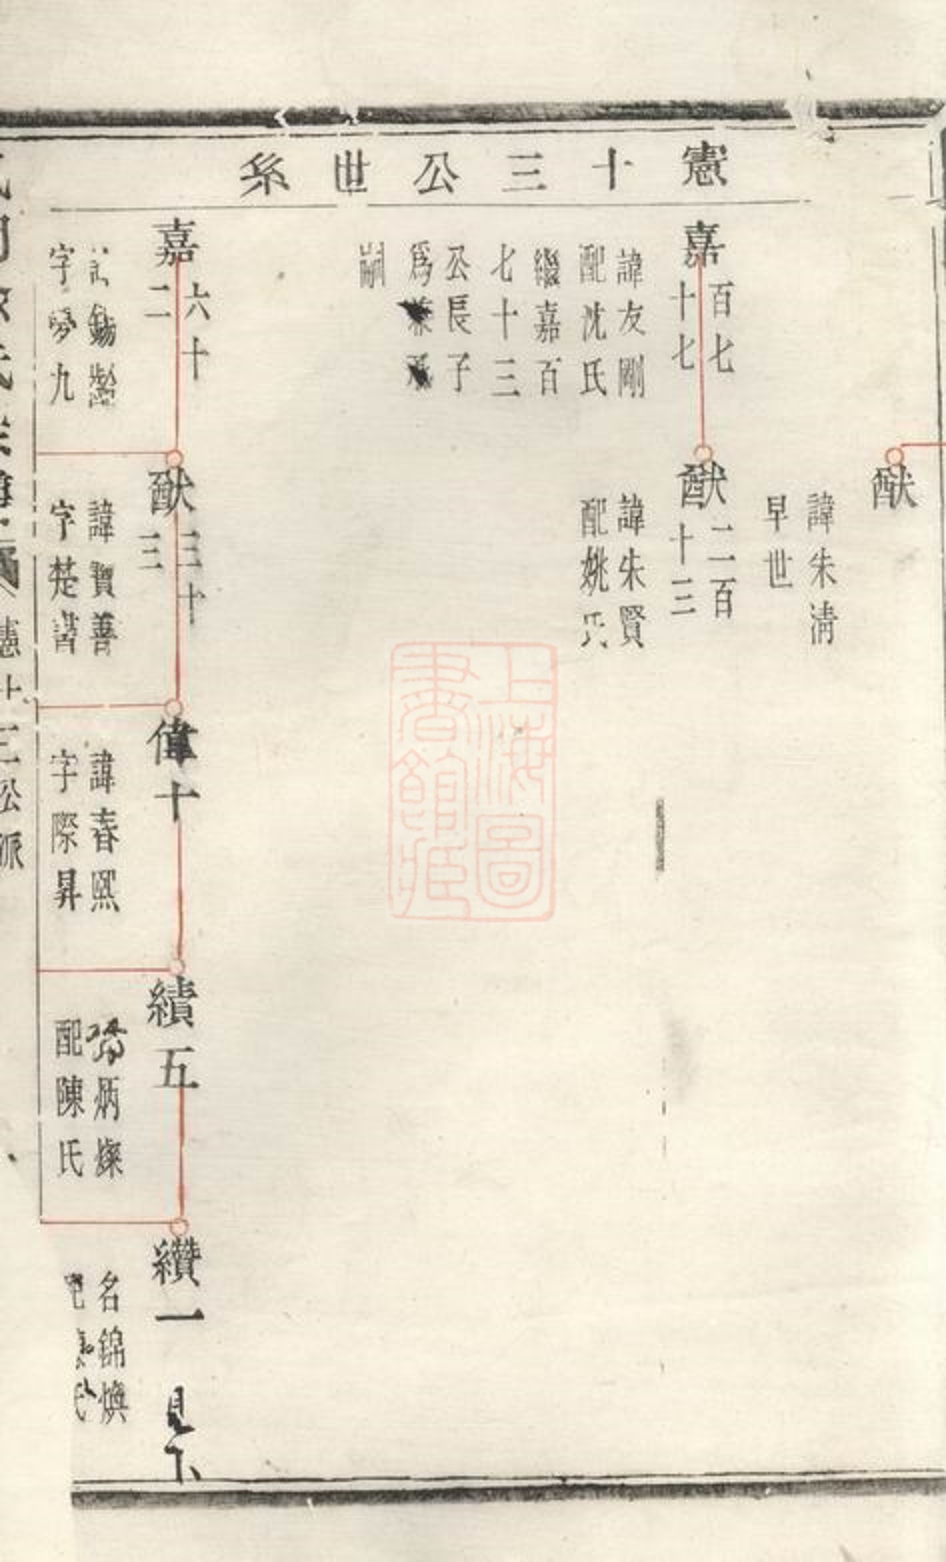 憲十三公世系
猷
諱朱淸
早世
嘉百七十七
諱友剛
配沈氏
繼嘉百
七十三
公長子
爲兼承
嗣
猷二百十三
諱朱賢
配姚氏
嘉六十二
錫齡
字夢九
猷三十三
諱寶善
字楚書
偉十
諱春熙
字際昇
績五
炳燦
配陳氏
纘一
見下
名錦煥
配 氏
憲十三公派
上海圖書館藏